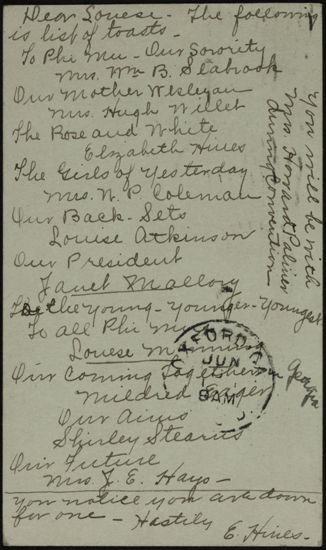 Dear Louese - The following
is list of toasts -
To Phi Mu - Our Sorority
Mrs. Wm B. Seabrook
Our Mother Wesleyan
Mrs. Hugh Willet
The Rose and White
Elizabeth Hines
The Girls of Yesterday
Mrs. W. P. Coleman
Our Back-Sets
Louise Atkinson
Our President
Janet Mallory
To the Young - Younger - Youngest
To all Phi Mu
Louese
Our Coming Together in Georgia
Mildred
Our Aims
Shirley Stearns
Our Future
Mrs. J. E. Hays -
you notice you are down
for one - Hastily
E. Hines -
You will be with
Mrs. Howard Palmer
during convention
JUN
8AM